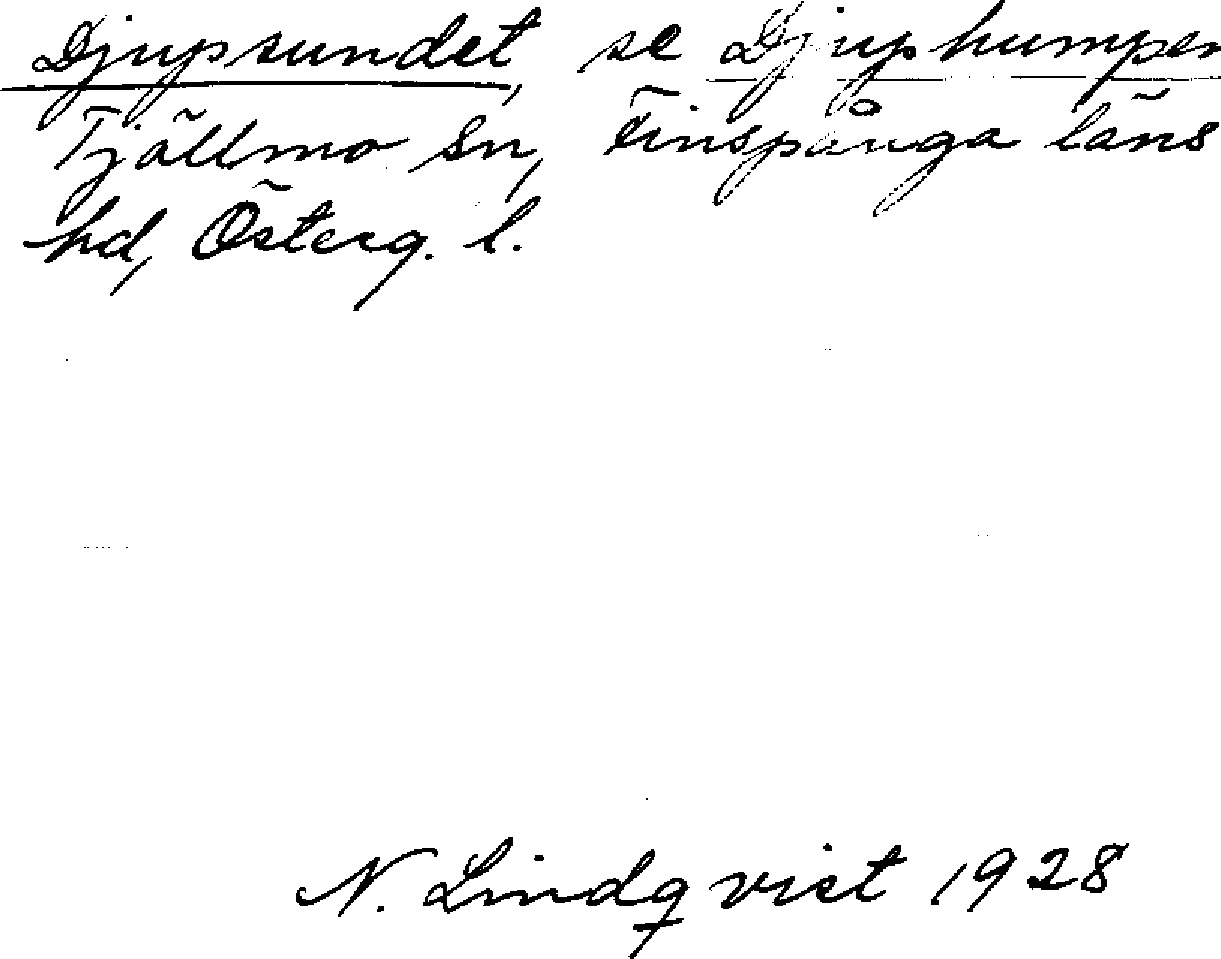 Djupsundet, se Djuphumpen
Tjällmo sn, Finspånga läns
hd, Österg. l.
N. Lindqvist 1928